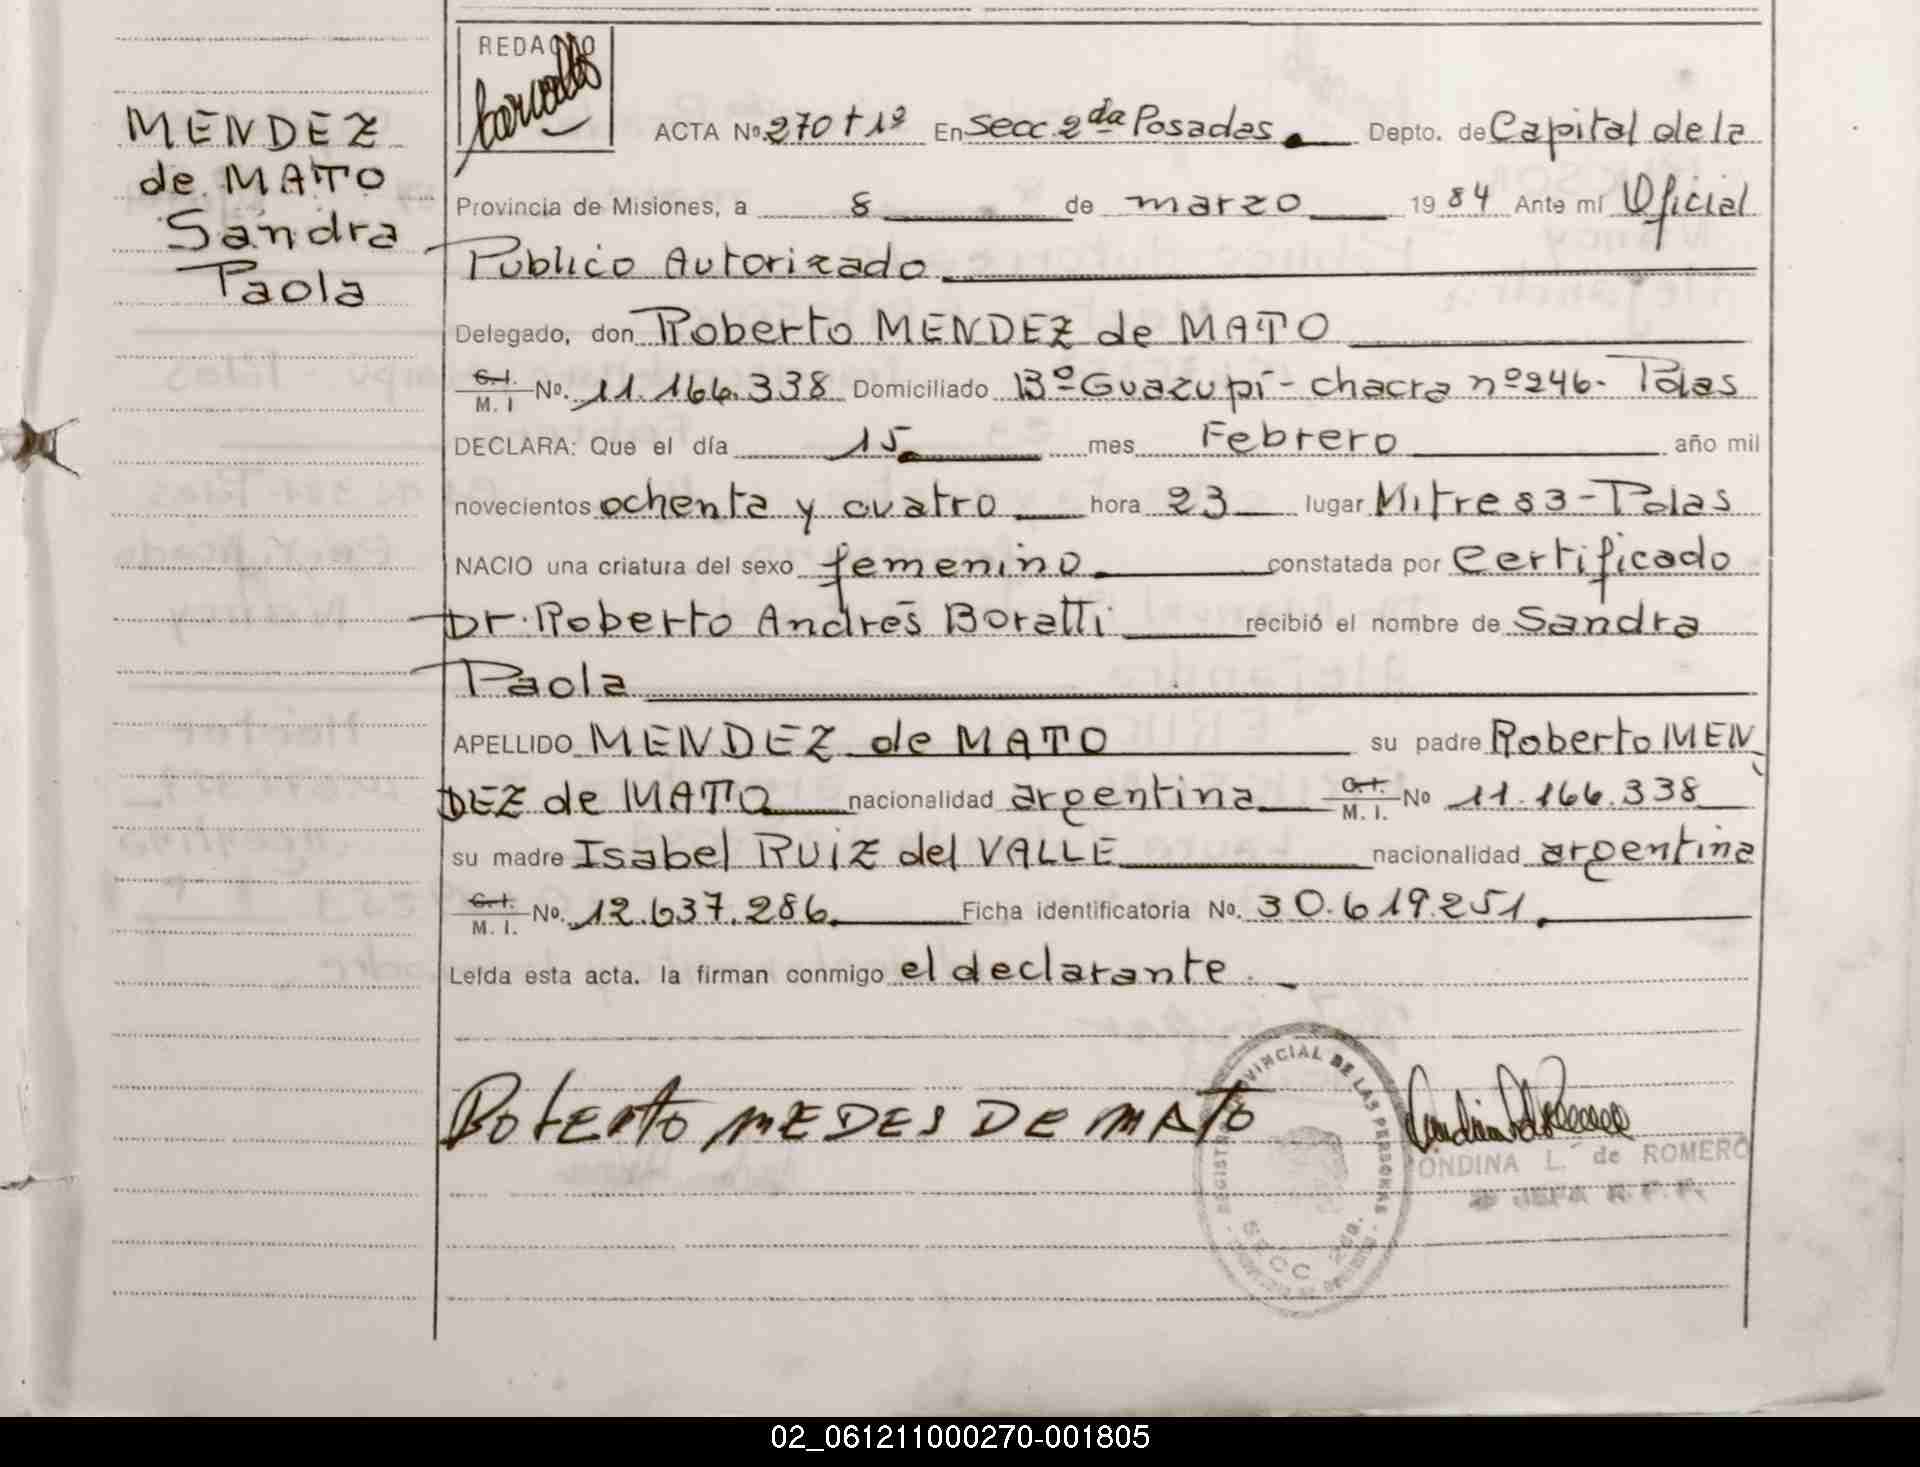 REDACTO
MENDEZ
de MATO
Sandra
Paola
ACTA Nº 270 t 1º En Secc. 2da Posadas. Depto. de Capital de la
Provincia de Misiones, a 8 de marzo 1984 Ante mí Oficial
Publico Autorizado
Delegado, don Roberto MENDEZ de MATO
C.I. M. I Nº. 11.166.338 Domiciliado Bº Guazupí - chacra nº 246 - Pdas
DECLARA: Que el día 15 mes Febrero año mil
novecientos ochenta y cuatro hora 23 lugar Mitre 83 - Pdas
NACIO una criatura del sexo femenino constatada por Certificado
Dr. Roberto Andrés Boratti recibió el nombre de Sandra
Paola
APELLIDO MENDEZ de MATO su padre Roberto MEN
DEZ de MATO nacionalidad argentina C.I. M. I. Nº 11.166.338
su madre Isabel RUIZ del VALLE nacionalidad argentina
C.I. M. I. Nº. 12.637.286. Ficha identificatoria Nº. 30.619.251.
Leída esta acta. la firman conmigo el declarante.
Roberto MEDES DE MATO
REGISTRO PROVINCIAL DE LAS PERSONAS
SECC. 2da.
ONDINA L. de ROMERO
02_061211000270-001805